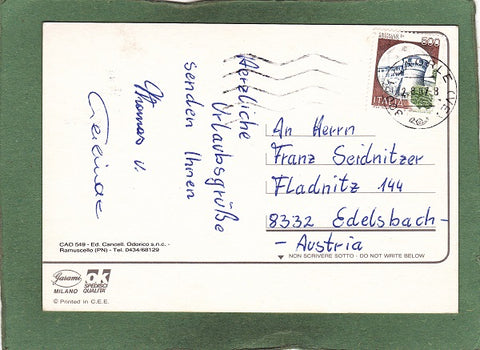 Herzliche
Urlaubsgrüße
senden Ihnen
Thomas u.
An Herrn
Franz Seidnitzer
Fladnitz 144
8332 Edelsbach -
- Austria
NON SCRIVERE SOTTO - DO NOT WRITE BELOW
CAO 548 - Ed. Cancell. Odorico s.n.c. -
Ramuscello (PN) - Tel. 0434/68129
Gaiami
MILANO
OK
SPEDISCI
QUALITA'
© Printed in C.E.E.
500
ITALIA